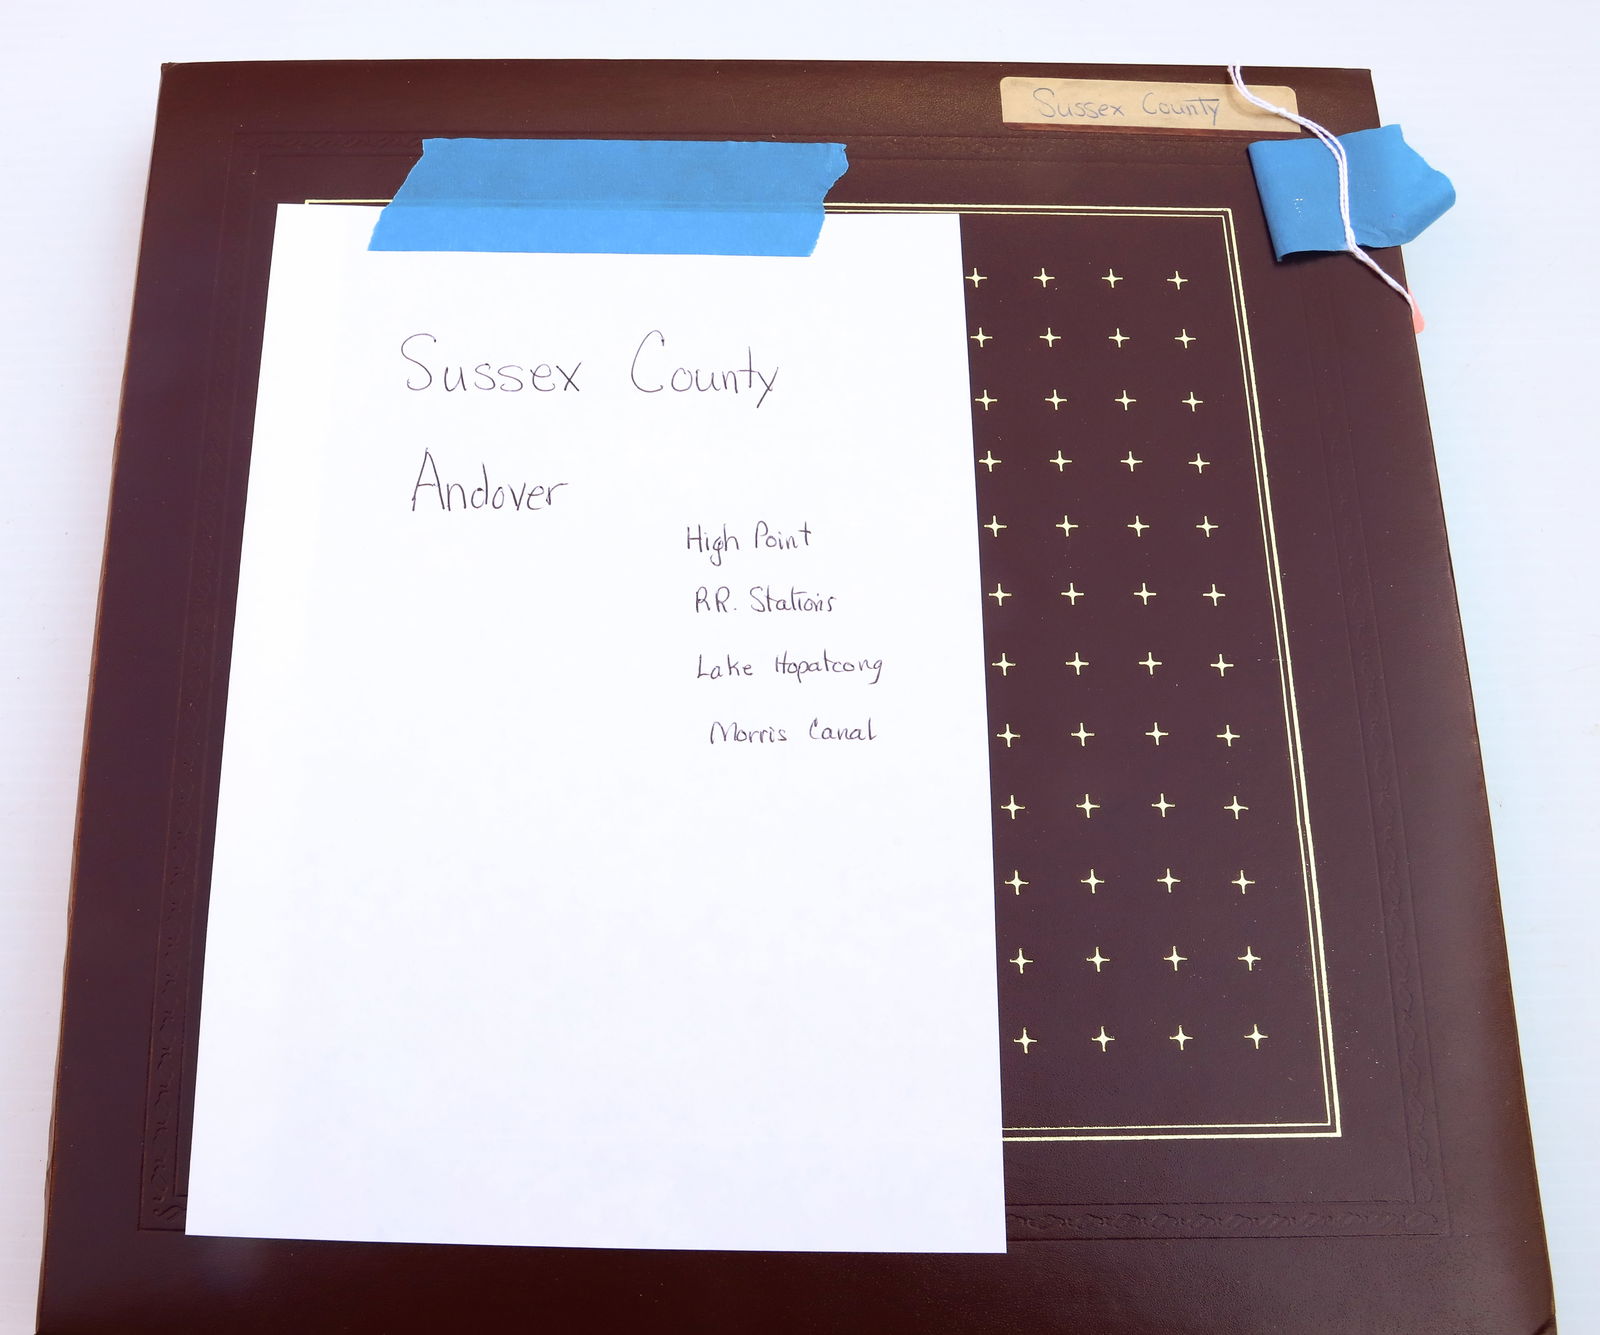 Sussex County
Sussex County
Andover
High Point
RR. Stations
Lake Hopatcong
Morris Canal